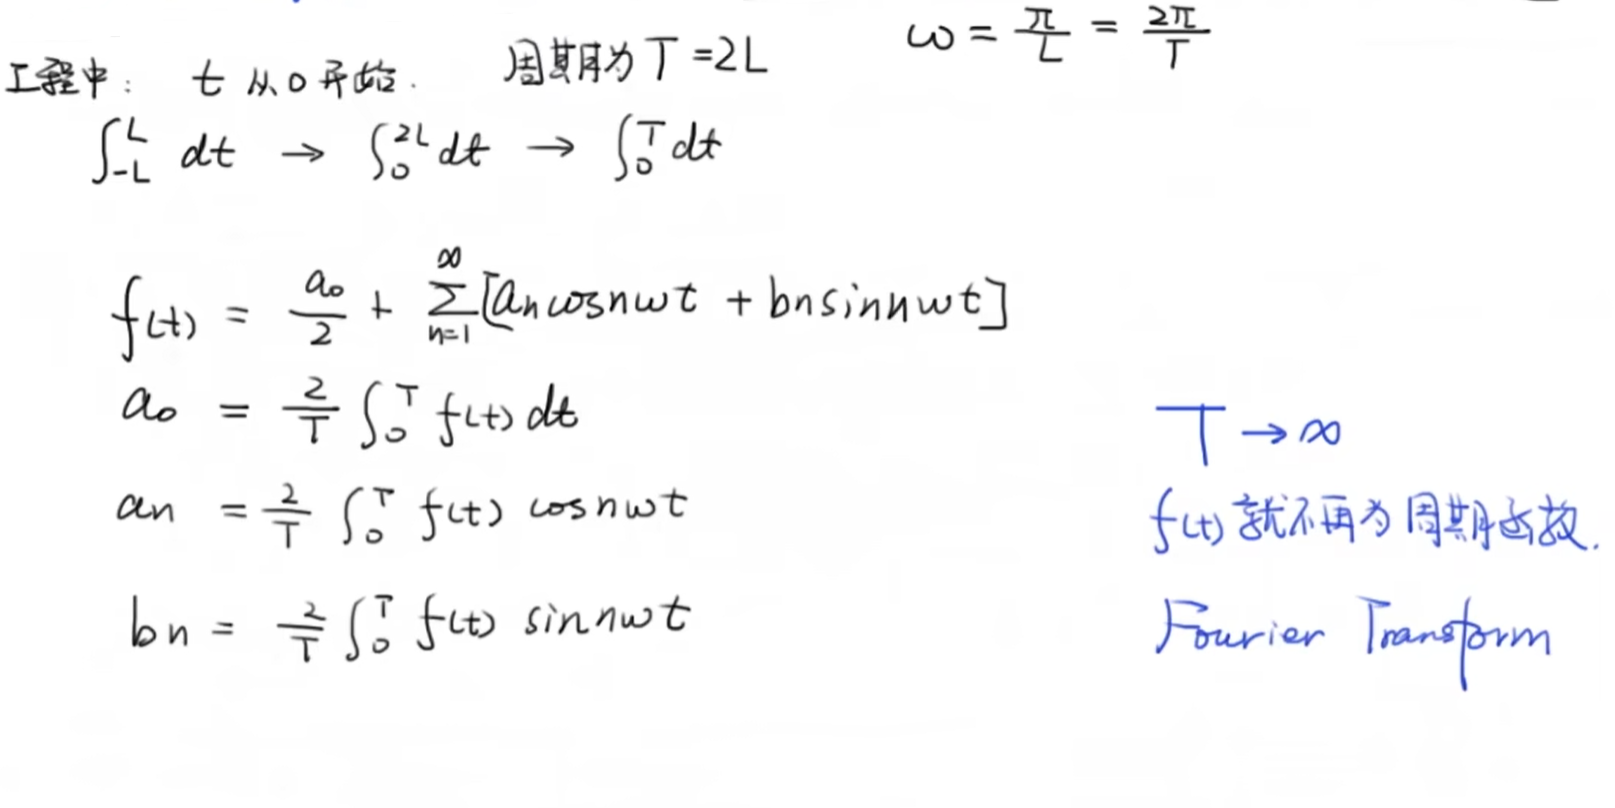 工程中： t 从0开始. 周期为 T=2L ω = π/L = 2π/T
∫_{-L}^{L} dt → ∫_0^{2L} dt → ∫_0^T dt
f(t) = a₀/2 + ∑_{n=1}^{∞} [an cosnωt + bn sinnωt]
a₀ = 2/T ∫_0^T f(t) dt
an = 2/T ∫_0^T f(t) cosnωt
bn = 2/T ∫_0^T f(t) sinnωt
T → ∞
f(t) 就不再为周期函数.
Fourier Transform